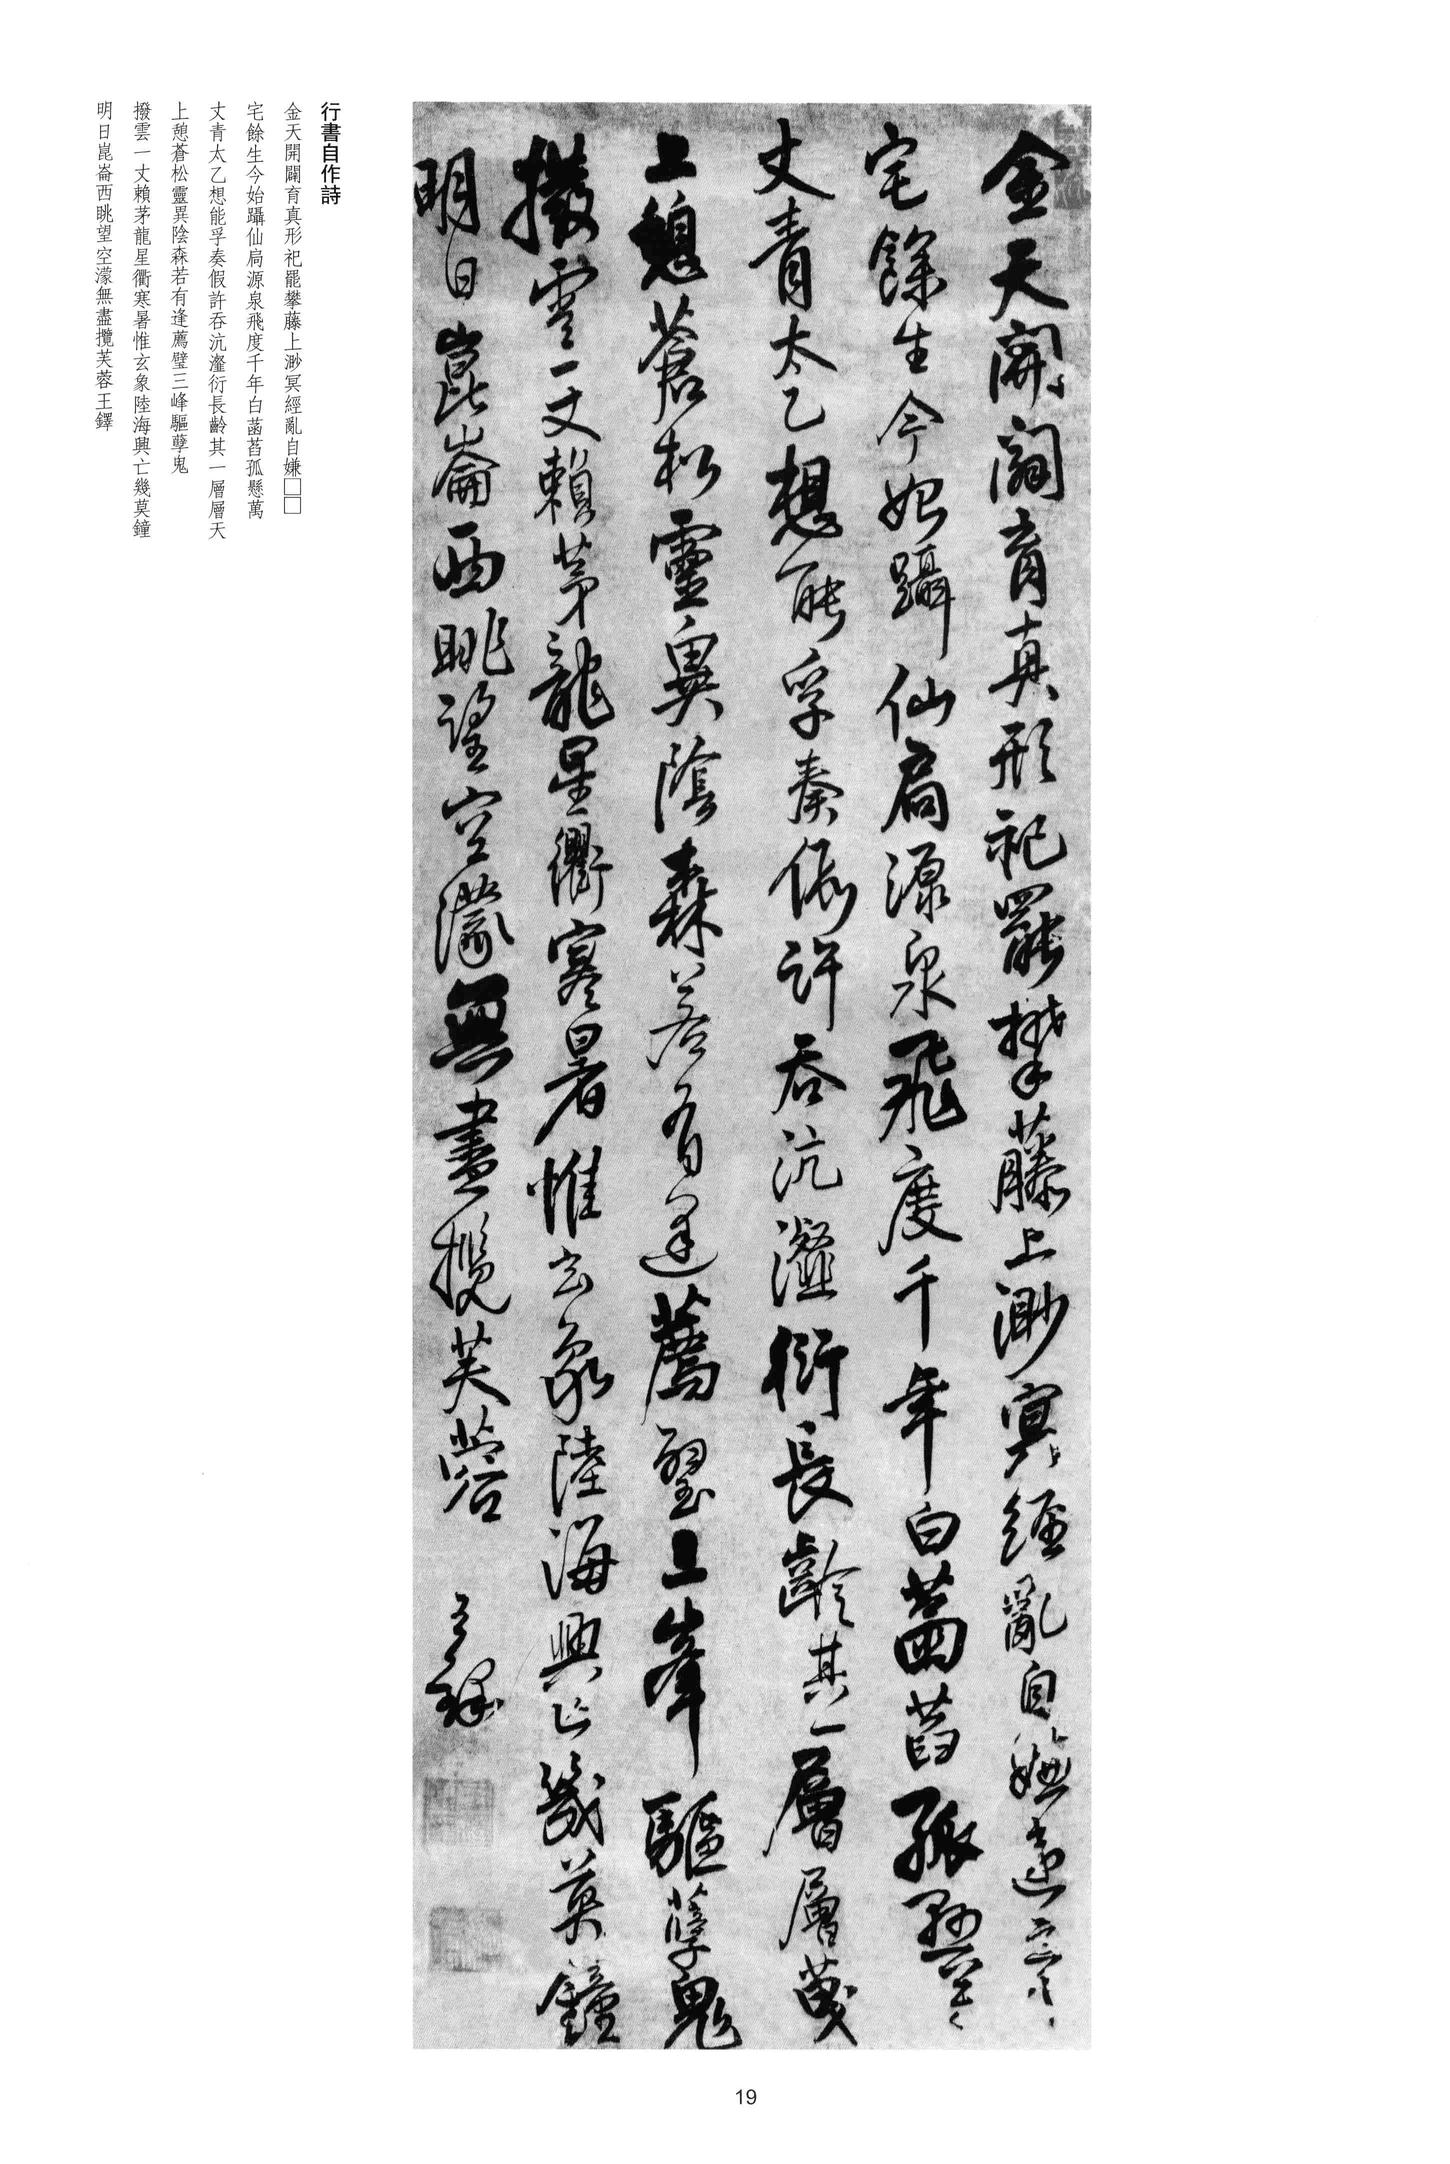 金天開闢育真形祀罷攀藤上渺冥經亂自嫌遠
宅餘生今始躡仙扃源泉飛度千年白菡萏孤懸萬
丈青太乙想能孚奏假許吞沆瀣衍長齡其一層層
上憩蒼松靈異陰森若有逢薦璧上峯驅孽鬼
撥雲一丈賴茅龍星衢寒暑惟玄象陸海興亡幾莫鐘
明日崑崙西眺望空濛無盡攬芙蓉 王鐸
行書自作詩
金天開闢育真形祀罷攀藤上渺冥經亂自嫌□□
宅餘生今始躡仙扃源泉飛度千年白菡萏孤懸萬
丈青太乙想能孚奏假許吞沆瀣衍長齡其一層層天
上憩蒼松靈異陰森若有逢薦璧三峰驅孽鬼
撥雲一丈賴茅龍星衢寒暑惟玄象陸海興亡幾莫鐘
明日崑崙西眺望空濛無盡攬芙蓉王鐸
19